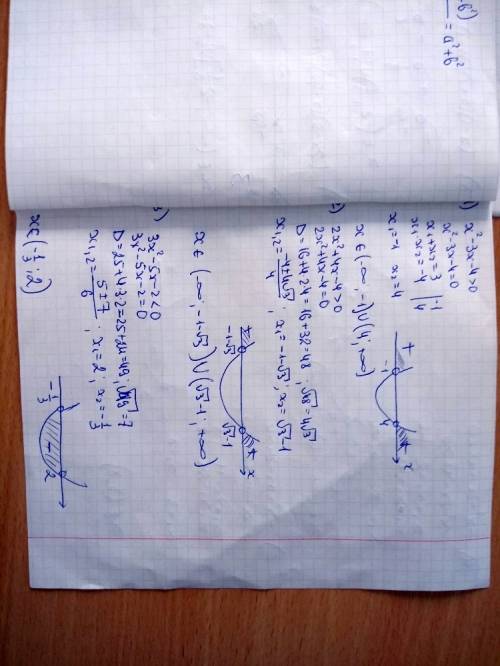 = a²+b²
x²-3x-4>0
x²-3x-4=0
x₁+x₂=3 | -1
x₁·x₂=-4 | 4
x₁=-1 x₂=4
+ -1 - 4 + x
x∈(-∞;-1)∪(4;+∞)
2x²+4x-4>0
2x²+4x-4=0
D=16+4·2·4=16+32=48; √48=4√3
x₁,₂=-4±4√3/4; x₁=-1-√3; x₂=√3-1
-1-√3 √3-1 x
x∈(-∞;-1-√3)∪(√3-1;+∞)
3x²-5x-2<0
3x²-5x-2=0
D=25+4·3·2=25+24=49; √49=7
x₁,₂=5±7/6; x₁=2; x₂=-1/3
-1/3 - 2
x∈(-1/3;2)